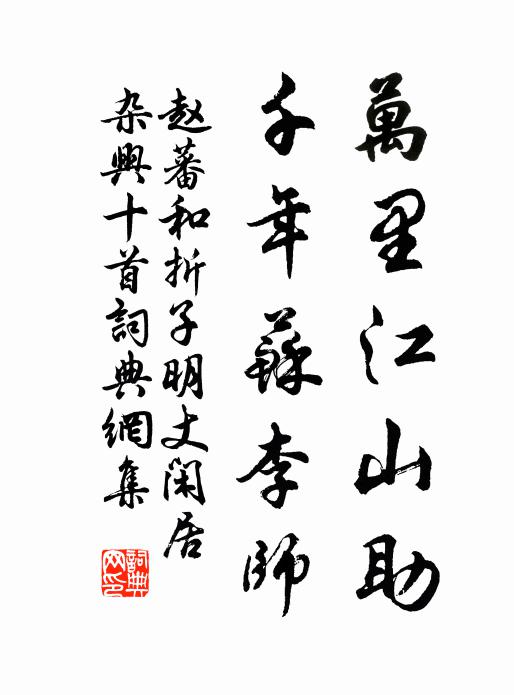 萬里江山助
千年蘇李師
赵蕃和折子明丈闲居
杂興十首詞典網集
詞典
网印